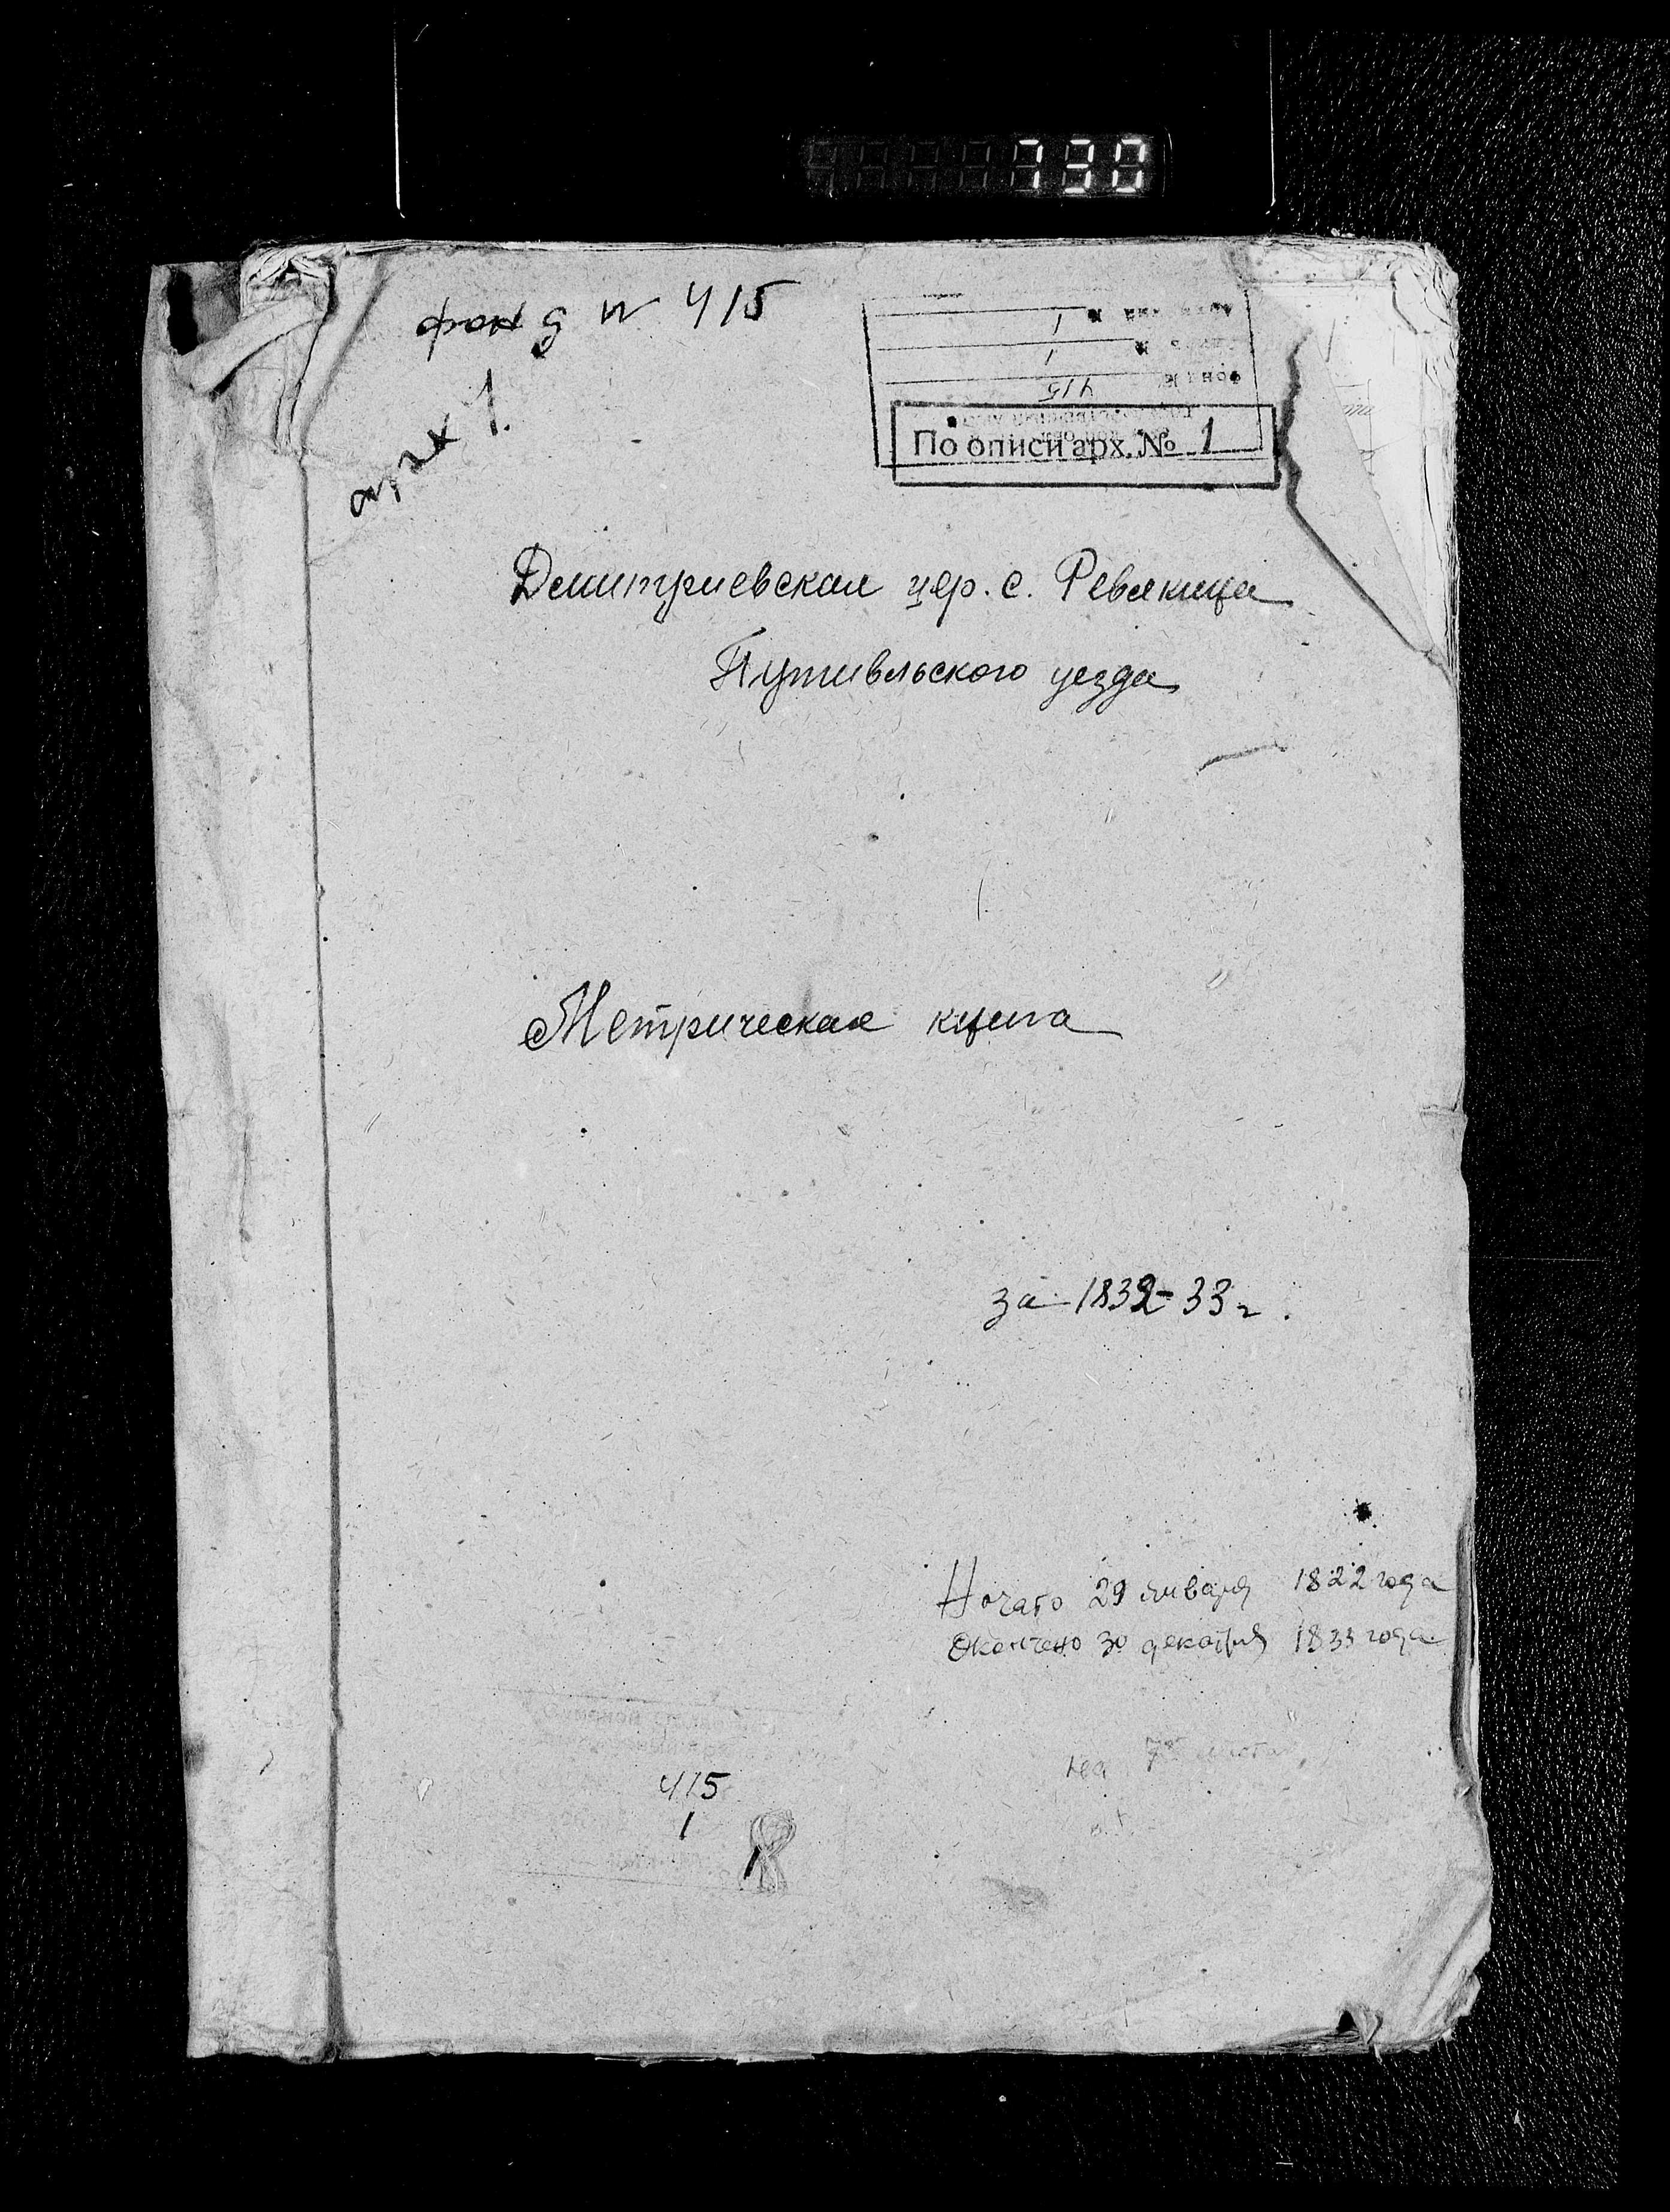 730
фонд № 415
арх 1.
415
По описи арх. № 1
Дмитриевская цер. с. Ревякина
Путивльского уезда
Метрическая книга
за 1832-33 г.
Начато 29 января 1822 года
Окончено 30 декабря 1833 года
на 7
415
1